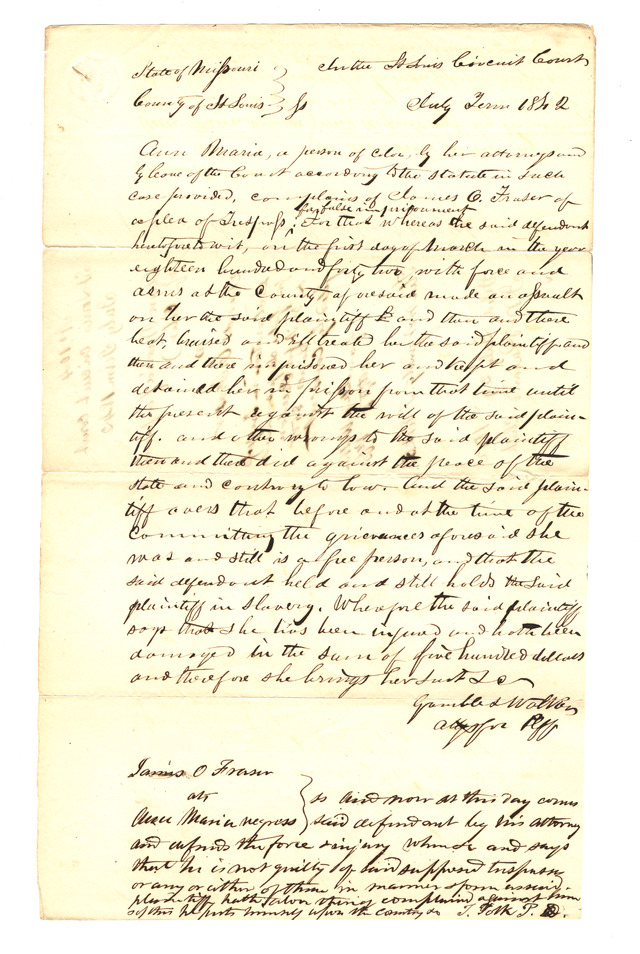 State of Missouri } In the St Louis Circuit Court
County of St Louis } Ss July Term 1842
Ann Maria, a person of color, by her attorneys and
by leave of the Court according to the statute in such
case provided, complains of James O. Fraser of
a plea of Trespass, for false imprisonment, For that whereas the said defendant
heretofore to wit, on the first day of March in the year
eighteen hundred and forty two, with force and
arms at the County aforesaid made an assault
on her the said plaintiff & and then and there
beat, bruised and ill treated her the said plaintiff and
then and there imprisoned her and kept and
detained her in prison from that time until
the present against the will of the said plain-
tiff. and other wrongs to the said plaintiff
then and there did against the peace of the
state and contrary to law. And the said plain-
tiff avers that before and at the time of the
committing the grievances aforesaid she
was and still is a free person, and that the
said defendant held and still holds the said
plaintiff in slavery. Wherefore the said plaintiff
says that she has been injured and hath been
damaged in the sum of five hundred dollars
and therefore she brings her suit &c
Gamble &
attys for Plff
James O Fraser
ats
Ann Maria negress } ss And now at this day comes
said defendant by his attorney
and defends the force & injury when &c and says
that he is not guilty of said supposed trespasses
or any or either of them in manner & form as said
plaintiff hath above thereof complained against him
& of this he puts himself upon the country &c T. Polk P. D.